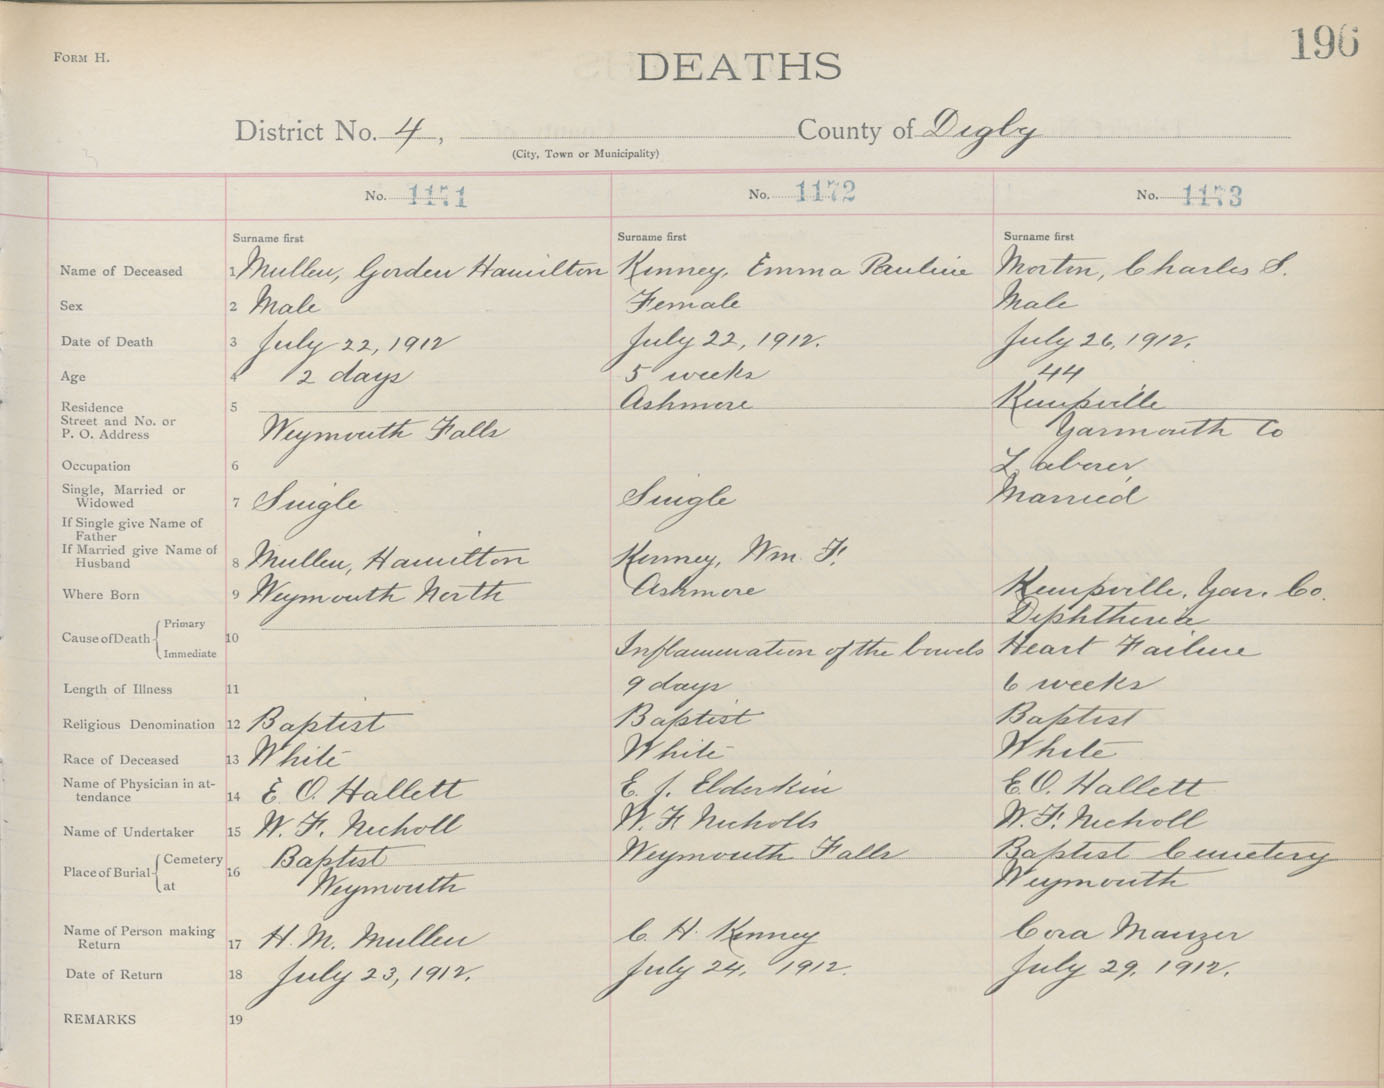 196
FORM H.
DEATHS
District No. 4, County of Digby
(City, Town or Municipality)
No. 1171 No. 1172 No. 1173
Surname first Surname first Surname first
Name of Deceased 1 Mullen, Gorden Hamilton Kinney, Emma Pauline Morton, Charles S.
Sex 2 Male Female Male
Date of Death 3 July 22, 1912 July 22, 1912. July 26, 1912.
Age 4 2 days 5 weeks 44
Residence 5 Ashmore Kempville
Street and No. or
P. O. Address Weymouth Falls Yarmouth Co
Occupation 6 Laborer
Single, Married or
Widowed 7 Single Single Married
If Single give Name of
Father
If Married give Name of
Husband 8 Mullen, Hamilton Kinney, Wm. F.
Where Born 9 Weymouth North Ashmore Kempville, Yar. Co.
Cause of Death Primary 10 Diphtheria
Immediate Inflammation of the bowels Heart Failure
Length of Illness 11 9 days 6 weeks
Religious Denomination 12 Baptist Baptist Baptist
Race of Deceased 13 White White White
Name of Physician in at-
tendance 14 E. O. Hallett E. J. Elderkin E. O. Hallett
Name of Undertaker 15 W. F. Nicholl W. F. Nicholls W. F. Nicholl
Place of Burial Cemetery 16 Baptist Weymouth Falls Baptist Cemetery
at Weymouth Weymouth
Name of Person making
Return 17 H. M. Mullen C. H. Kinney Cora Manzer
Date of Return 18 July 23, 1912. July 24, 1912. July 29, 1912.
REMARKS 19